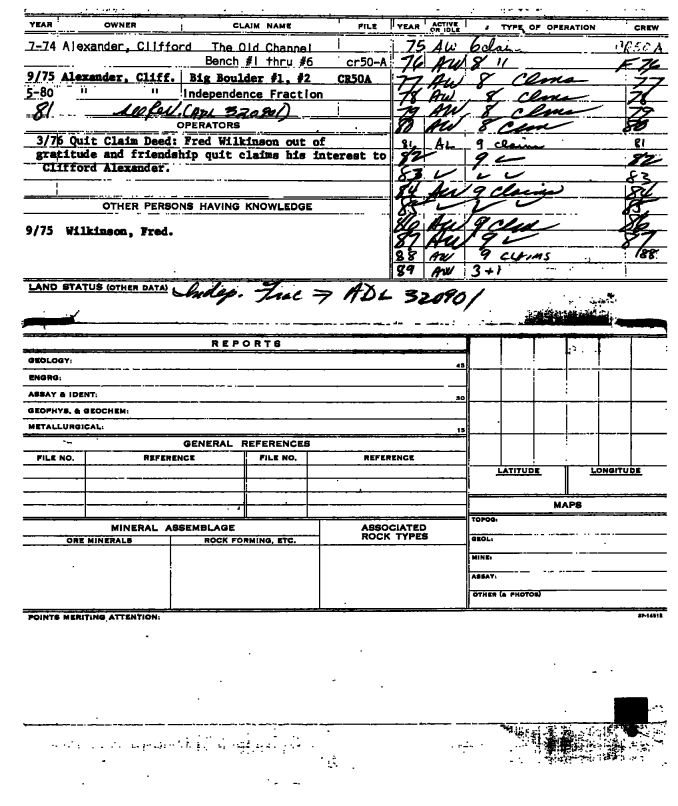 YEAR OWNER CLAIM NAME FILE
7-74 Alexander, Clifford The Old Channel
Bench #1 thru #6 cr50-A
9/75 Alexander, Cliff. Big Boulder #1, #2 CR50A
5-80 " " Independence Fraction
81 (ADL 320901)
OPERATORS
3/76 Quit Claim Deed: Fred Wilkinson out of
gratitude and friendship quit claims his interest to
Clifford Alexander.
OTHER PERSONS HAVING KNOWLEDGE
9/75 Wilkinson, Fred.
YEAR ACTIVE OR IDLE TYPE OF OPERATION CREW
75 AW 6 claim CR50A
76 AW 8 " F 76
77 AW 8 Clms 77
78 AW 8 Clms 78
79 AW 8 Clms 79
80 AW 8 Clm 80
81 AL 9 claims 81
82 ✓ 9 ✓ 82
83 ✓ ✓ ✓ 83
84 AW 9 Claims 84
85 ✓ ✓ ✓ 85
86 AW 9 Clms 86
87 AW 9 ✓ 87
88 AW 9 CLAIMS 88
89 AW 3+1
LAND STATUS (OTHER DATA) Indep. Frac ⇒ ADL 320901
REPORTS
GEOLOGY: 45
ENGRG:
ASSAY & IDENT: 30
GEOPHYS. & GEOCHEM:
METALLURGICAL: 15
GENERAL REFERENCES
FILE NO. REFERENCE FILE NO. REFERENCE
LATITUDE LONGITUDE
MAPS
TOPOG:
GEOL:
MINE:
ASSAY:
OTHER (& PHOTOS)
MINERAL ASSEMBLAGE ASSOCIATED ROCK TYPES
ORE MINERALS ROCK FORMING, ETC.
POINTS MERITING ATTENTION: